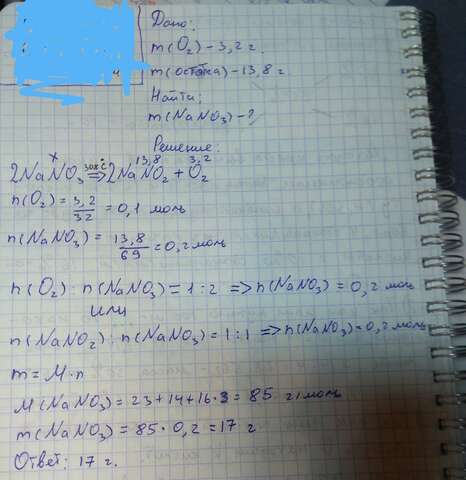 Дано:
m(O₂)-3,2 г.
m(остатка)-13,8 г.
Найти:
m(NaNO₃)-?
Решение:
x 13,8 3,2
2NaNO₃ ⇒ 2NaNO₂ + O₂
n(O₂) = 3,2/32 = 0,1 моль
n(NaNO₃) = 13,8/69 = 0,2 моль
n(O₂) : n(NaNO₃) = 1:2 => n(NaNO₃) = 0,2 моль
или
n(NaNO₂) : n(NaNO₃) = 1:1 => n(NaNO₃) = 0,2 моль
m = M·n
M(NaNO₃) = 23+14+16·3 = 85 г/моль
m(NaNO₃) = 85·0,2 = 17 г
Ответ: 17 г.